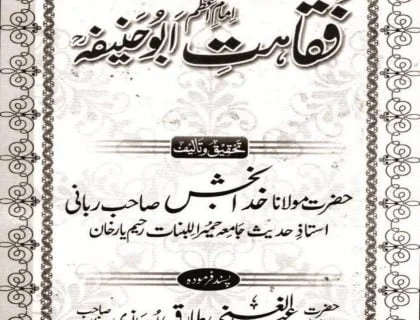 امام اعظم
فقاہتِ ابوحنیفہؒ
تحقیق و تالیف
حضرت مولانا خدا بخش صاحب ربانی
استاذِ حدیث جامعہ حمیرا للبنات رحیم یار خان
پسند فرمودہ
حضرت عبد الغنی طارق صاحب